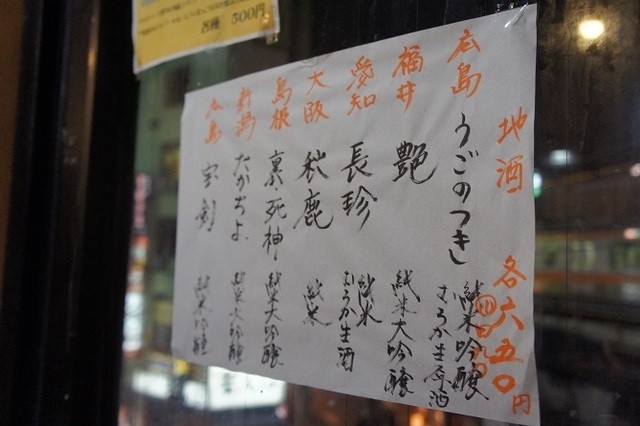 各種 500円
地酒 各六五〇円
広島 うごのつき 純米吟醸 むろか生原酒
福井 艶 純米大吟醸
愛知 長珍 純米 むろか生酒
大阪 秋鹿 純米
島根 裏死神 純米大吟醸
新潟 たかちよ 純米大吟醸
広島 宝剣 純米吟醸